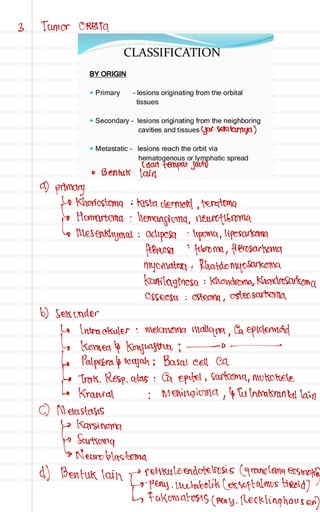 3. Tumor ORBITA
CLASSIFICATION
BY ORIGIN
• Primary - lesions originating from the orbital
tissues
• Secondary - lesions originating from the neighboring
cavities and tissues (jar. sekitarnya)
• Metastatic - lesions reach the orbit via
hematogenous or lymphatic spread
(dari tempat jauh)
• Bentuk lain
a) primary
↳ Khoristoma : kista dermoid, teratoma
↳ Hamartoma : hemangioma, neurofibroma
↳ Mesenkhymal : adiposa : lipoma, liposarkoma
fibrosa : fibroma, fibrosarkoma
myomatosa : Rhabdomyosarkoma
kartilaginosa : Khondroma, Khondrosarkoma
Osseosa : osteoma, osteosarkoma
b) Sekunder
↳ Intraokuler : melanoma maligna, Ca epidermoid
↳ Kornea & Konjungtiva : —— 〃 ——
↳ Palpebra & wajah : Basal cell Ca
↳ Trak. Resp. atas : Ca epitel, sarkoma, mukokele
↳ Kranial : Meningioma, & Tu Intrakranial lain
c) Metastasis
↳ Karsinoma
↳ Sarkoma
↳ Neuroblastoma
d) Bentuk lain → retikuloendoteliosis (granuloma eosinofilik
→ Peny. Metabolik (eksoftalmus tiroid)
↳ Fakomatosis (Peny. Recklinghausen)